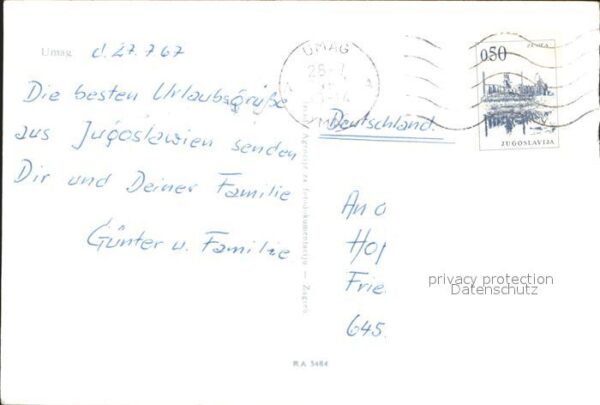 Umag d. 27.7.67
Die besten Urlaubsgrüße
aus Jugoslawien senden
Dir und Deiner Familie
Günter u. Familie
UMAG
0,50
ZENICA
JUGOSLAVIJA
Deutschland.
An
Hop
Frie
645
privacy protection
Datenschutz
Agencija za fotodokumentaciju — Zagreb
RA 5484